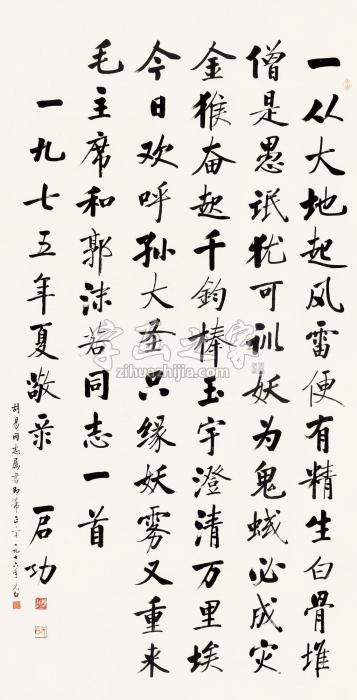 一从大地起风雷便有精生白骨堆
僧是愚氓犹可训妖为鬼蜮必成灾
金猴奋起千钧棒玉宇澄清万里埃
今日欢呼孙大圣只缘妖雾又重来
毛主席和郭沫若同志一首
一九七五年夏敬录 启功
同志属书即希正 一九七六年
字画之家
zihuazhijia.com